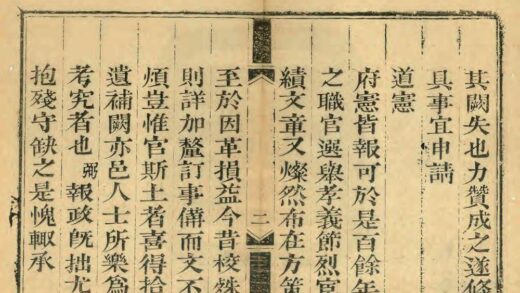 其闕失也力贊成之遂修
具事宜申請
道憲
府憲皆報可於是百餘年
之職官選舉孝義節烈官
績文章又燦然布在方策
二
至於因革損益今昔校殊
則詳加釐訂事備而文不
煩豈惟官斯土者喜得拾
遺補闕亦邑人士所樂爲
考究者也弼報政旣拙尤
抱殘守缺之是愧輒承